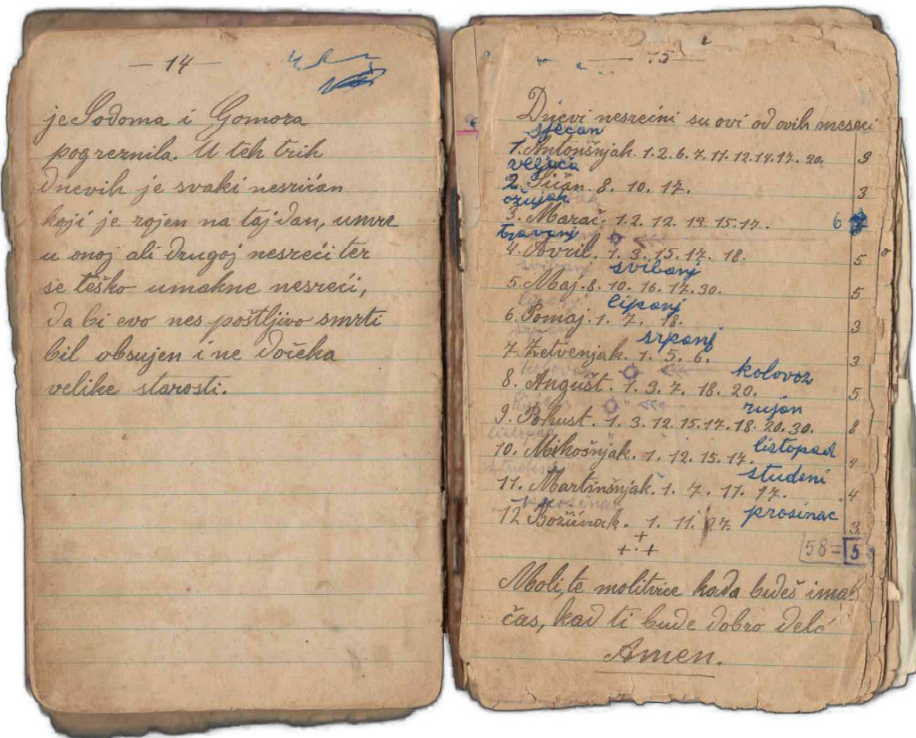 — 14 —
je Sodoma i Gomora
pogreznila. U teh trih
dnevih je svaki nesrićan
koji je rojen na taj dan, umre
u onoj ali drugoj nesreći ter
se teško umakne nesreći,
da bi evo nes poštljivo smrti
bil obsujen i ne dočeka
velike starosti.
— 15 —
Dnevi nesrećni su ovi od ovih meseci
sječanj
1. Antonšnjak. 1. 2. 6. 7. 11. 12. 14. 17. 20. 9
veljača
2. Sičan. 8. 10. 17. 3
ožujak
3. Marač. 1. 2. 12. 19. 15. 17. 6
travanj
4. Avril. 1. 3. 15. 17. 18. 5
svibanj
5. Maj. 8. 10. 16. 17. 30. 5
lipanj
6. Pomaj. 1. 7. 18. 3
srpanj
7. Žetvenjak. 1. 5. 6. 3
kolovoz
8. Angušt. 1. 3. 7. 18. 20. 5
rujan
9. Pokust. 1. 3. 12. 15. 17. 18. 20. 30. 8
10. Mikošnjak. 1. 12. 15. 17. listopad 4
studeni
11. Martinšnjak. 1. 7. 11. 17. 4
12 Božićnak. 1. 11. 27 prosinac 3
58 = 5
Molite molitvice kada budeš imal
čas, kad ti bude dobro delo
Amen.